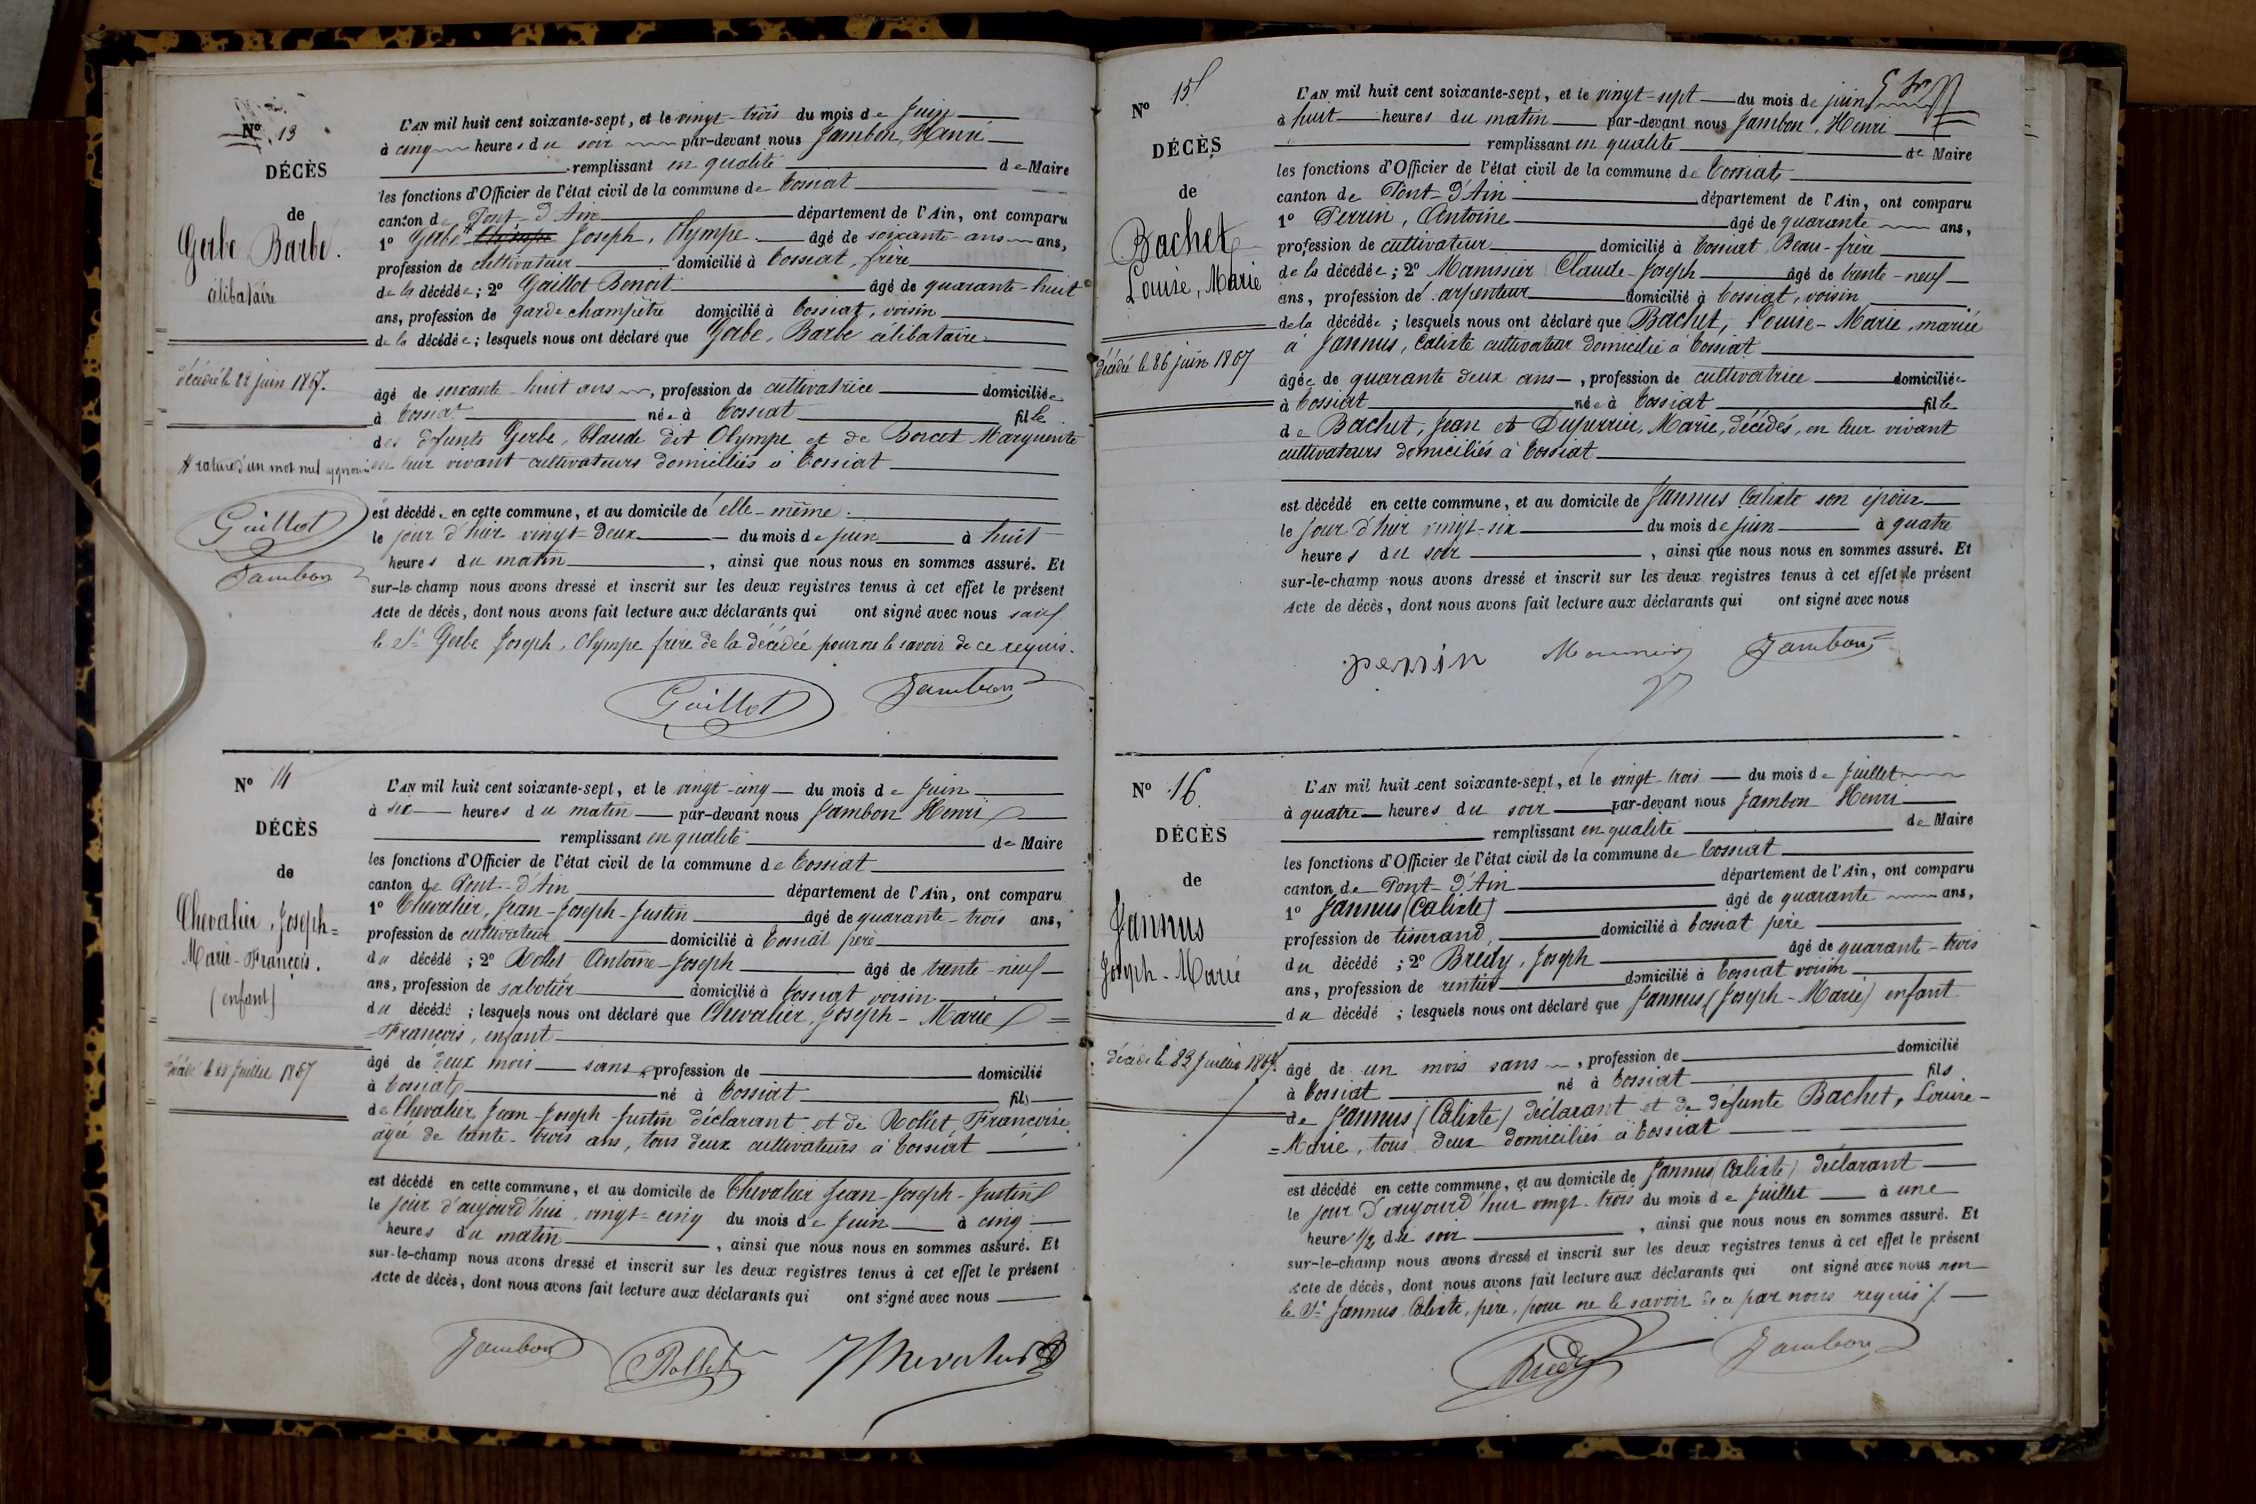 Nº 13
DÉCÈS
de
Gerbe Barbe.
célibataire
décédée le 22 juin 1867.
# rature d'un mot nul approuvé
Guillot
Jambon
L'AN mil huit cent soixante-sept, et le vingt-trois du mois de Juin
à cinq heures du soir par-devant nous Jambon, Henri
remplissant en qualité de Maire
les fonctions d'Officier de l'état civil de la commune de Cossiat
canton de Pont-d'Ain département de l'Ain, ont comparu
1º Gerbe # Joseph, Olympe âgé de soixante ans ans,
profession de cultivateur domicilié à Cossiat, frère
de la décédée; 2º Guillot Benoit âgé de quarante-huit
ans, profession de garde champêtre domicilié à Cossiat, voisin
de la décédée; lesquels nous ont déclaré que Gerbe, Barbe célibataire
âgé de soixante-huit ans, profession de cultivatrice domiciliée
à Cossiat née à Cossiat fille
des défunts Gerbe, Claude dit Olympe et de Borcet Marguerite
en leur vivant cultivateurs domiciliés à Cossiat
est décédé en cette commune, et au domicile de elle-même
le jour d'hier vingt-deux du mois de juin à huit
heures du matin, ainsi que nous nous en sommes assuré. Et
sur-le-champ nous avons dressé et inscrit sur les deux registres tenus à cet effet le présent
Acte de décès, dont nous avons fait lecture aux déclarants qui ont signé avec nous sauf
le Sr Gerbe Joseph, Olympe frère de la décédée pour ne le savoir de ce requis.
Guillot Jambon
Nº 14
DÉCÈS
de
Chevalier, Joseph=
Marie-François.
(enfant)
Juillet 1867
L'AN mil huit cent soixante-sept, et le vingt-cinq du mois de Juin
à six heures du matin par-devant nous Jambon Henri
remplissant en qualité de Maire
les fonctions d'Officier de l'état civil de la commune de Cossiat
canton de Pont-d'Ain département de l'Ain, ont comparu
1º Chevalier, Jean-Joseph-Justin âgé de quarante-trois ans,
profession de cultivateur domicilié à Cossiat père
du décédé; 2º Rollet Antoine-Joseph âgé de trente-neuf
ans, profession de sabotier domicilié à Cossiat voisin
du décédé; lesquels nous ont déclaré que Chevalier, Joseph-Marie
=François, enfant
âgé de deux mois sans profession de domicilié
à Cossiat né à Cossiat fils
de Chevalier Jean-Joseph-Justin déclarant et de Rollet, Françoise
âgée de trente-trois ans, tous deux cultivateurs à Cossiat
est décédé en cette commune, et au domicile de Chevalier Jean-Joseph-Justin
le jour d'aujourd'hui vingt-cinq du mois de Juin à cinq
heures du matin, ainsi que nous nous en sommes assuré. Et
sur-le-champ nous avons dressé et inscrit sur les deux registres tenus à cet effet le présent
Acte de décès, dont nous avons fait lecture aux déclarants qui ont signé avec nous
Jambon Rollet J Chevalier
Nº 15
DÉCÈS
de
Bachet
Louise, Marie
décédée le 26 juin 1867
L'AN mil huit cent soixante-sept, et le vingt-sept du mois de juin
à huit heures du matin par-devant nous Jambon, Henri
remplissant en qualité de Maire
les fonctions d'Officier de l'état civil de la commune de Cossiat
canton de Pont-d'Ain département de l'Ain, ont comparu
1º Perrin, Antoine âgé de quarante ans,
profession de cultivateur domicilié à Cossiat Beau-frère
de la décédée; 2º Mannissier Claude-Joseph âgé de trente-neuf
ans, profession de arpenteur domicilié à Cossiat, voisin
de la décédée; lesquels nous ont déclaré que Bachet, Louise-Marie, mariée
à Jannus, Calixte cultivateur domicilié à Cossiat
âgée de quarante deux ans, profession de cultivatrice domiciliée
à Cossiat née à Cossiat fille
de Bachet, Jean et Duperrier, Marie, décédés, en leur vivant
cultivateurs domiciliés à Cossiat
est décédé en cette commune, et au domicile de Jannus Calixte son époux
le jour d'hier vingt-six du mois de juin à quatre
heures du soir, ainsi que nous nous en sommes assuré. Et
sur-le-champ nous avons dressé et inscrit sur les deux registres tenus à cet effet le présent
Acte de décès, dont nous avons fait lecture aux déclarants qui ont signé avec nous
perrin Jambon
Nº 16
DÉCÈS
de
Jannus
Joseph-Marie
décédé le 23 Juillet 1867
L'AN mil huit cent soixante-sept, et le vingt-trois du mois de Juillet
à quatre heures du soir par-devant nous Jambon Henri
remplissant en qualité de Maire
les fonctions d'Officier de l'état civil de la commune de Cossiat
canton de Pont-d'Ain département de l'Ain, ont comparu
1º Jannus (Calixte) âgé de quarante ans,
profession de tisserand, domicilié à Cossiat père
du décédé; 2º Bredy, Joseph âgé de quarante-trois
ans, profession de rentier domicilié à Cossiat voisin
du décédé; lesquels nous ont déclaré que Jannus (Joseph-Marie) enfant
âgé de un mois sans, profession de domicilié
à Cossiat né à Cossiat fils
de Jannus (Calixte) déclarant et de défunte Bachet, Louise-
=Marie, tous deux domiciliés à Cossiat
est décédé en cette commune, et au domicile de Jannus (Calixte) déclarant
le jour d'aujourd'hui vingt-trois du mois de Juillet à une
heure 1/2 du soir, ainsi que nous nous en sommes assuré. Et
sur-le-champ nous avons dressé et inscrit sur les deux registres tenus à cet effet le présent
Acte de décès, dont nous avons fait lecture aux déclarants qui ont signé avec nous non
le Sr Jannus Calixte, père, pour ne le savoir de ce par nous requis
Bredy Jambon